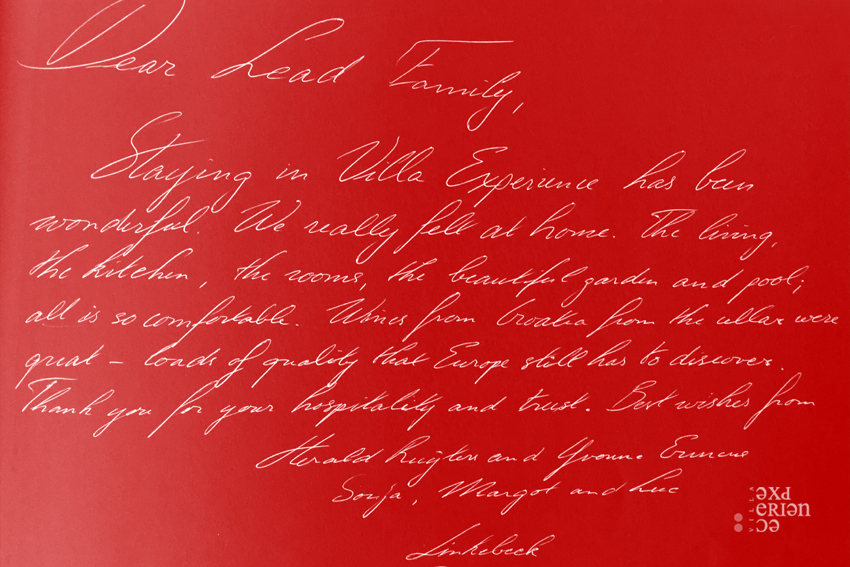 Dear Lead Family,
Staying in Villa Experience has been
wonderful. We really felt at home. The living,
the kitchen, the rooms, the beautiful garden and pool;
all is so comfortable. Wines from Croatia from the cellar were
great – loads of quality that Europe still has to discover.
Thank you for your hospitality and trust. Best wishes from
Herald and Yvonne
Sonja, Margot and Luc
Linkebeek
VILLA
EXPE
RIEN
CE